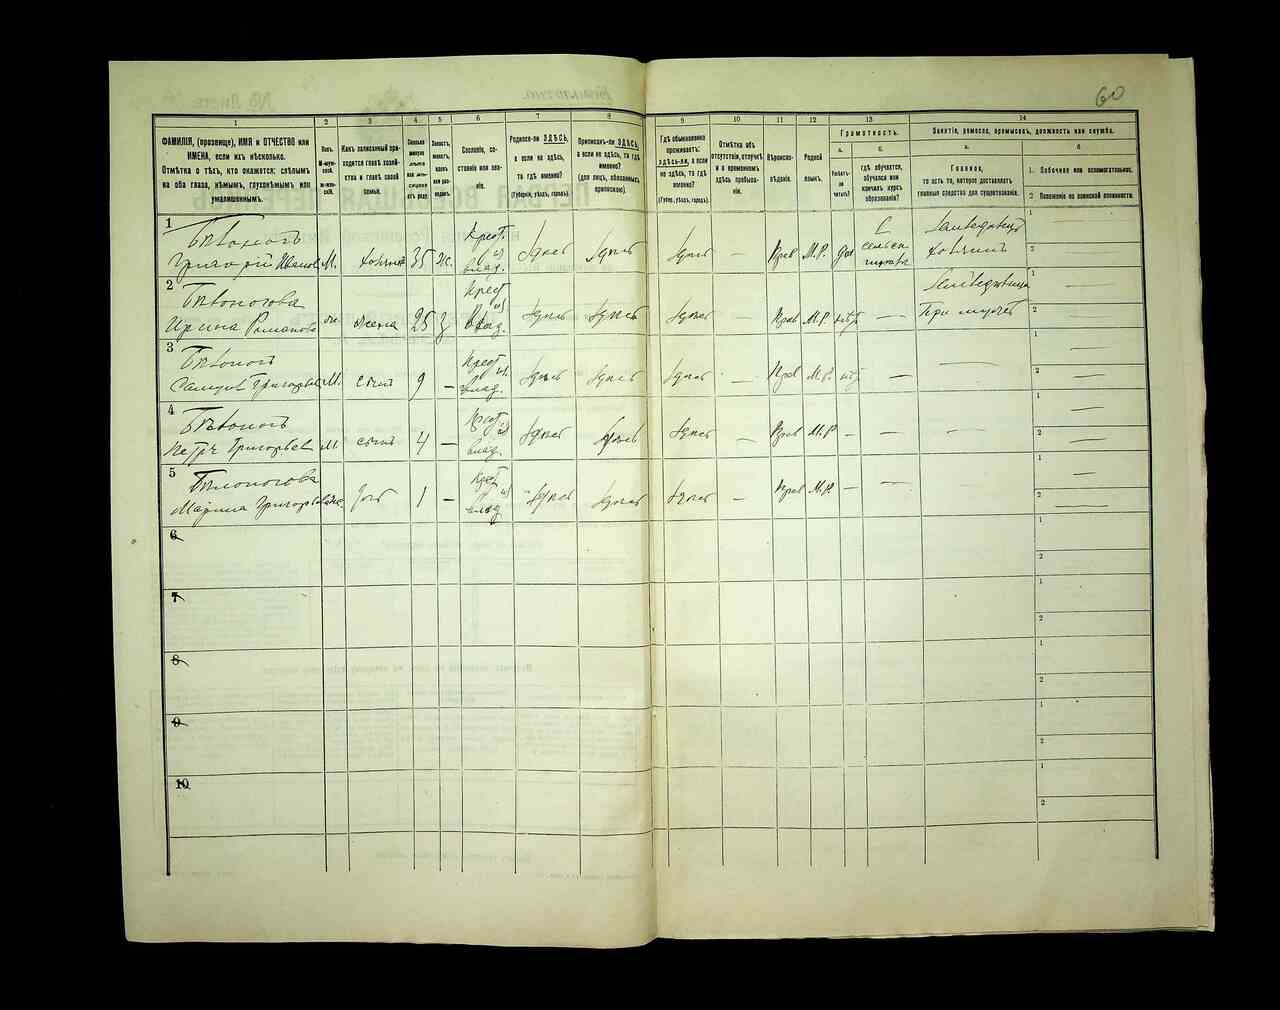 60
1
2
3
4
5
6
7
8
9
10
11
12
13
14
ФАМИЛІЯ, (прозвище), ИМЯ и ОТЧЕСТВО или
ИМЕНА, если ихъ нѣсколько.
Отмѣтка о тѣхъ, кто окажется: слѣпымъ
на оба глаза, нѣмымъ, глухонѣмымъ или
умалишеннымъ.
Какъ записанный при-
ходится главѣ хозяй-
ства и главѣ своей
семьи.
Сословіе, со-
стояніе или зва-
ніе.
Родился-ли ЗДѢСЬ,
а если не здѣсь,
то гдѣ именно?
(Губернія, уѣздъ, городъ).
Приписанъ-ли ЗДѢСЬ,
а если не здѣсь, то гдѣ
именно?
(для лицъ, обязанныхъ
припискою).
Гдѣ обыкновенно
проживаетъ:
здѣсь-ли, а если
не здѣсь, то гдѣ
именно?
(Губерн., уѣздъ, городъ).
Отмѣтка объ
отсутствіи, отлучкѣ
и о временномъ
здѣсь пребыва-
ніи.
Вѣроиспо-
вѣданіе.
Родной
языкъ.
Грамотность.
а.
б.
Умѣетъ-
ли
читать?
гдѣ обучается,
обучался или
кончилъ курсъ
образованія?
Занятіе, ремесло, промыселъ, должность или служба.
а.
Главное,
то есть то, которое доставляетъ
главныя средства для существованія.
б
1. Побочное или вспомогательное.
2 Положеніе по воинской повинности.
1
Бѣлоногъ
Григорій Иванов М. хозяинъ 35 ж. Крест. из влад. здѣсь здѣсь здѣсь — Прав М.Р. да
Земледѣлецъ
хозяинъ
1
2
2
Бѣлоногова
Ирина Романова ж. жена 25 з Крест из влад. здѣсь здѣсь здѣсь — Прав М.Р. нѣт —
Земледѣлица
При мужѣ
1
2
3
Бѣлоногъ
Григорьев М. сынъ 9 — Крест из влад. здѣсь здѣсь здѣсь — Прав М.Р. нѣт — —
1
2
4
Бѣлоногъ
Петръ Григорьев М сынъ 4 — Крест из влад. здѣсь здѣсь здѣсь — Прав М.Р. — — —
1
2
5
Бѣлоногова
Марина Григорьева ж. дочь 1 — Крест из влад здѣсь здѣсь здѣсь — Прав М.Р. — — —
1
2
6
1
2
7
1
2
8
1
2
9
1
2
10
1
2